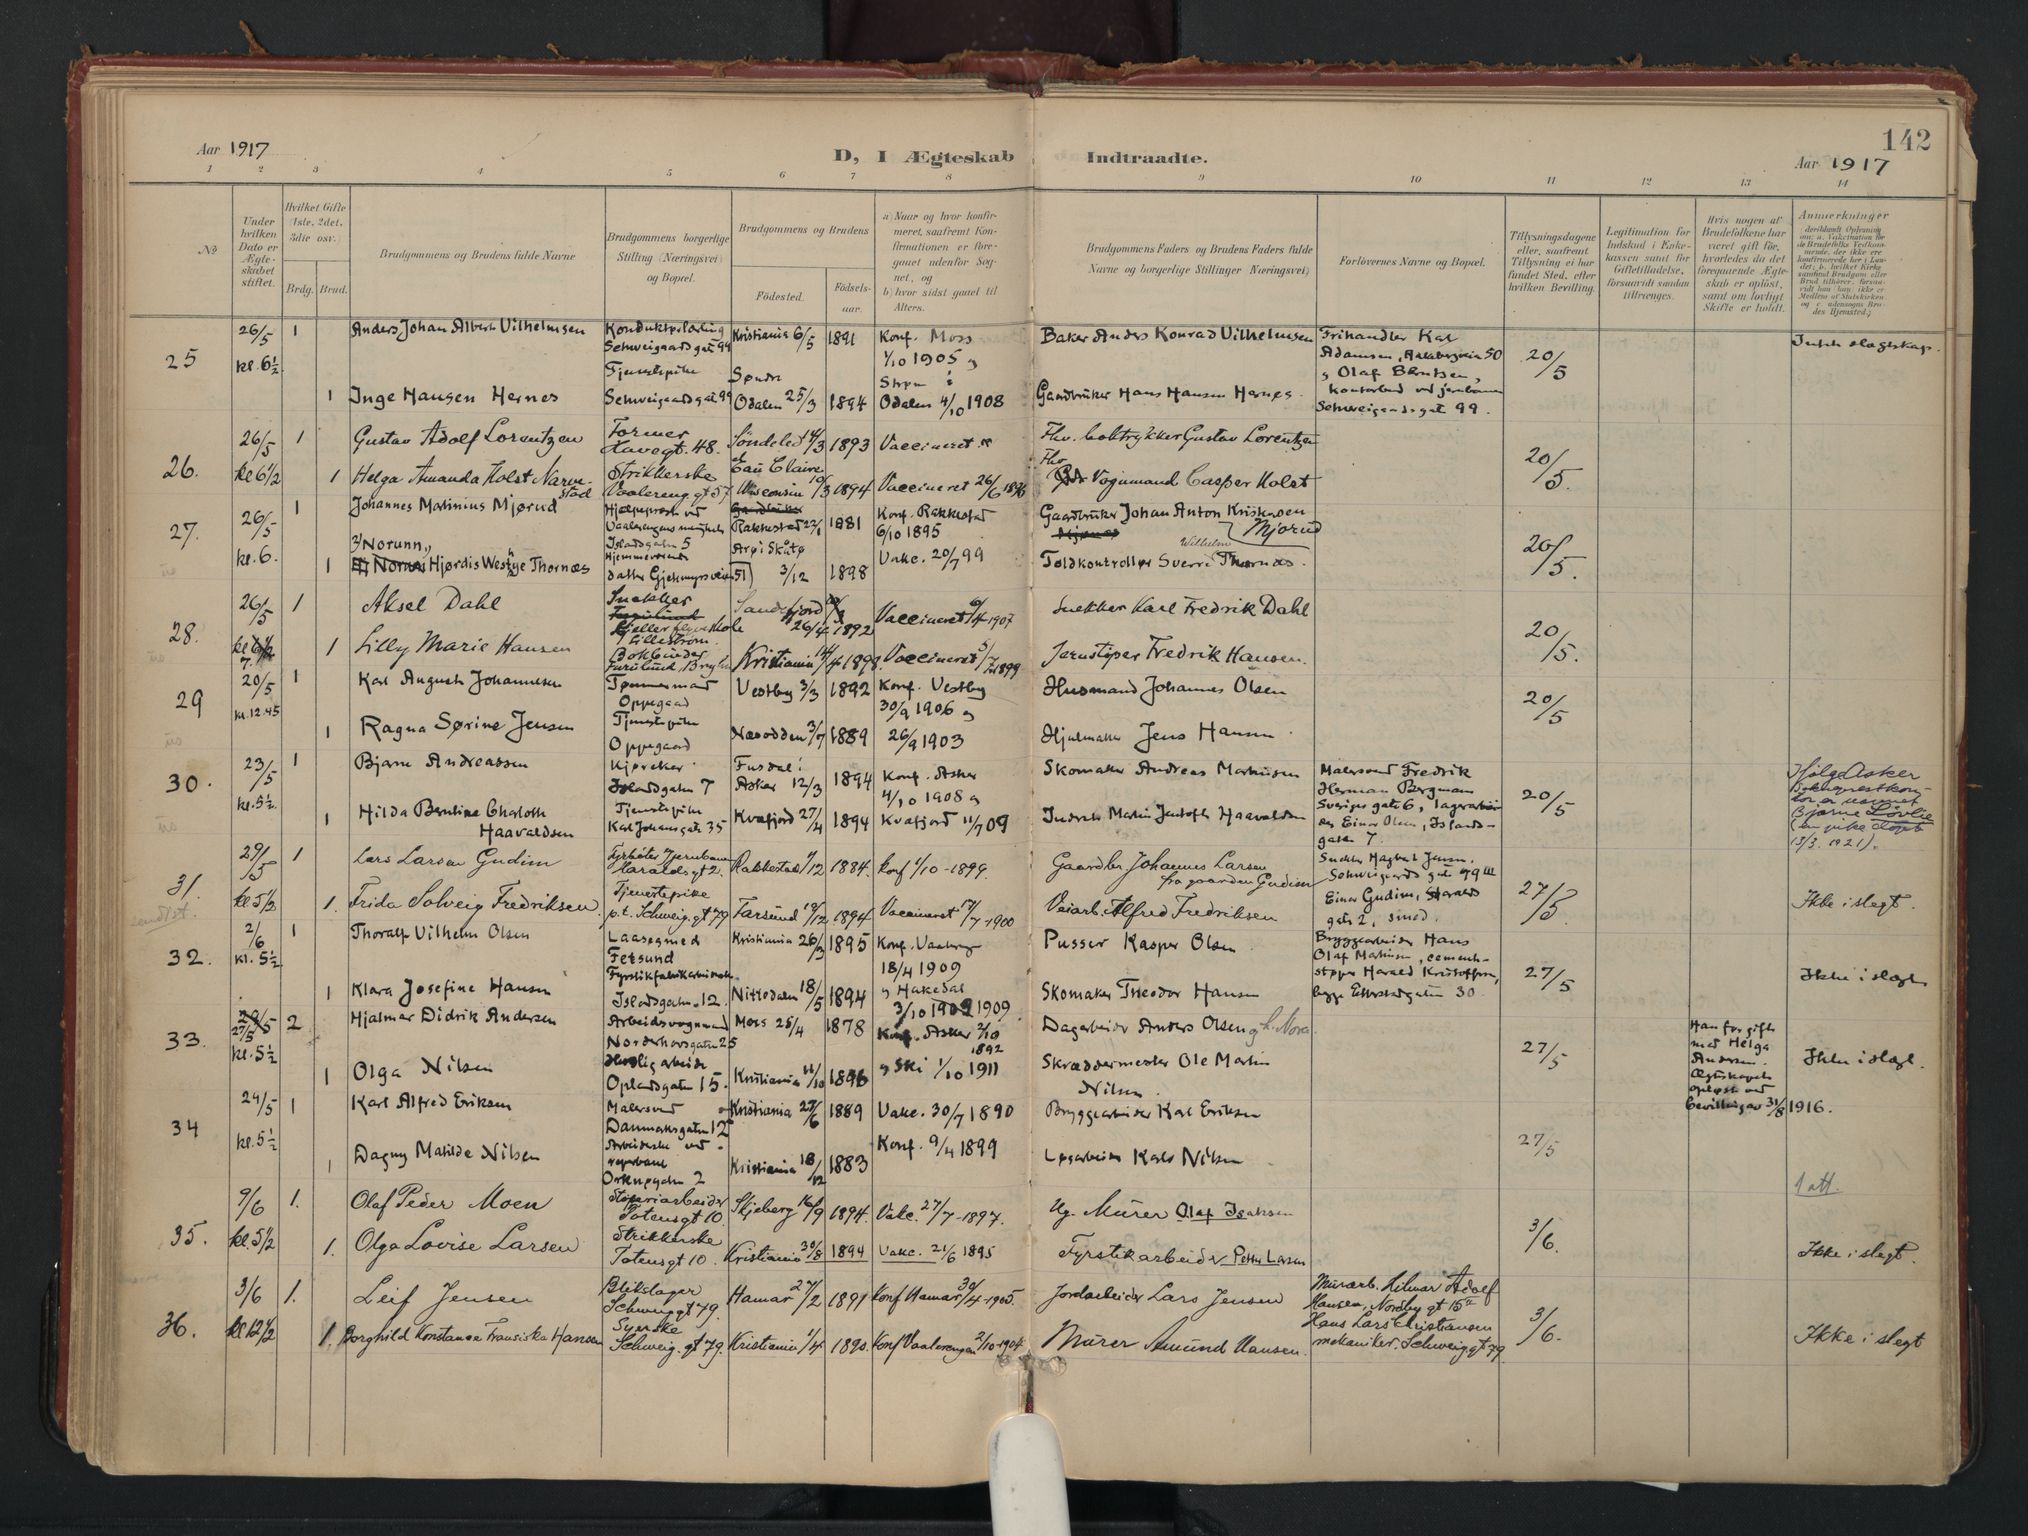 142
Aar 1917
D, I Ægteskab Indtraadte.
Aar 1917
1 2 3 4 5 6 7 8 9 10 11 12 13 14
No
Under hvilken Dato er Ægteskabet stiftet.
Hvilket Gifte (1ste, 2det, 3die osv.)
Brdg. Brud.
Brudgommens og Brudens fulde Navne
Brudgommens borgerlige Stilling (Næringsvei) og Bopæl.
Brudgommens og Brudens
Födested. Födsels-aar.
a) Naar og hvor konfirmeret, saafremt Konfirmationen er foregaaet udenfor Sognet, og
b) hvor sidst gaaet til Alters.
Brudgommens Faders og Brudens Faders fulde Navne og borgerlige Stillinger (Næringsvei)
Forlovernes Navne og Bopæl.
Tillysningsdagene eller, saafremt Tillysning ei har fundet Sted, efter hvilken Bevilling.
Legitimation for Indskud i Enkekassen samt for Giftetilladelse, forsaavidt saadan tiltrænges.
Hvis nogen af Brudefolkene har været gift för, hvorledes da det foregaaende Ægteskab er oplöst, samt om lovligt Skifte er holdt.
Anmerkninger
25
26/5 1 Anders Johan Albert Vilhelmsen
Schweigaardsgat 99
Kristiania 6/5 1891
Konf. Moss
1/10 1905
Baker Anders Konrad Vilhelmsen
Frihandler Karl
Adamsen,
Olaf Berntsen,
Schweigaardsgat 99.
20/5
kl. 6½
1 Inge Hansen Hernes
Tjenestepike
Schweigaardsgat 99
Søndre
Odalen 25/3 1894
Strøm i
Odalen 4/10 1908
Gaardbruker Hans Hansen Hernes.
26.
26/5 1 Gustav Adolf Lorentzen
Former
Havegt. 48.
Søndeled 14/3 1893
Vaccineret
Fhv. boktrykker Gustav Lorentzen
20/5.
kl 6½ 1 Helga Amanda Holst Narve-
stad
Strikkerske
Vaalereng gt 57
Eau Claire
Wisconsin 10/3 1894
Vaccineret 26/6 1896
Fhv.
Vognmand Casper Holst
27.
26/5 1 Johannes Martinius Mjørud
Hjælpeprest ved
Islandsgaten 5
Rakkestad 1881
Konf. Rakkestad
6/10 1895
Gaardbruker Johan Anton Kristiansen
Mjørud
20/5.
kl. 6. 1 Norunn,
Hjørdis Westye Thornæs
Hjemmeværende
datter
Arøi Skåtø
3/12 1898
Vakc. 20/7 99
Wilhelm
Toldkontrollør Sverre Thornæs.
28.
26/5 1 Aksel Dahl
Snekker
Kjeller flyveskole
Lillestrøm.
Sandefjord
26/4 1892
Vaccineret 6/4 1907
Snekker Karl Fredrik Dahl
20/5.
7. 1 Lilly Marie Hansen
Bokbinder
Furulund, Bryn
Kristiania 14/4 1898.
Vaccineret 5/7 1899
Jernstøper Fredrik Hansen.
29
20/5 1 Karl August Johannesen
Tømmermand
Oppegaard
Vestby 3/3 1892
Konf. Vestby
30/9 1906
Husmand Johannes Olsen
20/5
kl. 12.45
1 Ragna Sørine Jensen
Tjenestepike
Oppegaard
Næsodden 3/7 1889
26/9 1903
Hjulmaker Jens Hansen.
30.
23/5 1 Bjarne Andreassen
Kjøreker
Islandsgaten 7
Fusdal i
Asker 12/3 1894
Konf. Asker
4/10 1908
Skomaker Andreas Martinsen
Malersvend Fredrik
Herman Bergman
Sverigesgate 6, lagerarbei-
der Einar Olsen, Islands-
gaten 7.
20/5
Ifølge Asker
(13/3. 1921).
kl. 5½.
1 Hilda Berntine Charlotte
Haavaldsen
Tjenestepike
Karl Johansgate 35
Kvæfjord 27/4 1894
Kvæfjord 11/7 09
Inderst Martin Jentoft Haavaldsen
31.
29/5 1 Lars Larsen Gudim
Haraldsgt 2.
Rakkestad 1/12 1884.
Konf 1/10 - 1899.
Gaardbr Johannes Larsen
fra gaarden Gudim
Schweigaards gate 79 III
Einar Gudim, Haralds
gate 2, smed.
27/5
Ikke i slegt.
kl 5½ 1. Frida Solveig Fredriksen
Tjenestepike
p.t. Schweig. gt 79
Farsund 19/12 1894
Vaccineret 17/7 - 1900
Veiarb. Alfred Fredriksen
32.
2/6 1 Thoralf Vilhelm Olsen
Laasesmed
Fetsund
Kristiania 26/3 1895
Konf. Vaalereng
18/4 1909
Pusser Kasper Olsen
Bryggearbeider Hans
Olaf Martinsen, cement-
støper Harald Kristoffersen,
begge Etterstadgaten 30.
27/5
Ikke i slægt
kl. 5½
1 Klara Josefine Hansen
Fyrstikfabrikarbeiderske
Islandsgaten 12.
Nittedalen 18/5 1894
Hakedal
3/10 1909
Skomaker Theodor Hansen
33.
27/5 2 Hjalmar Didrik Andersen
Arbeidsvognmand
Norderhovsgaten 25
Moss 25/4 1878
Konf. Asker 2/10
1892
Dagarbeider Anders Olsen
27/5
Han før gift
med Helga
Andersen.
Ægteskapet
opløst ved
bevilling av 31/8 1916.
Ikke i slægt.
kl. 5½
1 Olga Nilsen
Huslig arbeide
Oplandsgaten 15.
Kristiania 11/10 1896
Ski 1/10 1911
Skræddermester Ole Martin
Nilsen.
34
29/5 1 Karl Alfred Eriksen
Malersvend
Danmarksgaten 12
Kristiania 27/6 1889
Vakc. 30/7 1890
Bryggearbeider Karl Eriksen
27/5
kl. 5½
1 Dagny Matilde Nilsen
Arbeiderske ved
reperbane
Orknøygaten 2
Kristiania 18/12 1883
Konf. 9/4 1899
Løsarbeider Karl Nilsen
35.
9/6 1. Olaf Peder Moen
Støperiarbeider
Totensgt 10.
Skjeberg 16/9 1894.
Vakc. 27/7 - 1897.
Ug. Murer Olaf Isaksen
3/6.
1 att.
kl. 5½ 1. Olga Lovise Larsen
Strikkerske
Totensgt 10.
Kristiania 30/8 1894
Vakc. 21/6 1895
Fyrstikarbeider Petter Larsen
Ikke i slegt.
36.
3/6 1. Leif Jensen
Blikslager
Schweiggt 79.
Hamar 27/2 1891
Konf Hamar 30/4 - 1905.
Jordarbeider Lars Jensen
Murarb. Hilmar Adolf
Hansen, Nordby gt 15
Hans Lars Christiansen
mekaniker. Schweig gt 79
3/6.
kl 12½ 1. Borghild Konstanse Fransiska Hansen
Syerske
Schweig. gt 79.
Kristiania 1/4 1890.
Konf Vaalerengen 2/10 - 1904
Murer Amund Hansen.
Ikke i slegt